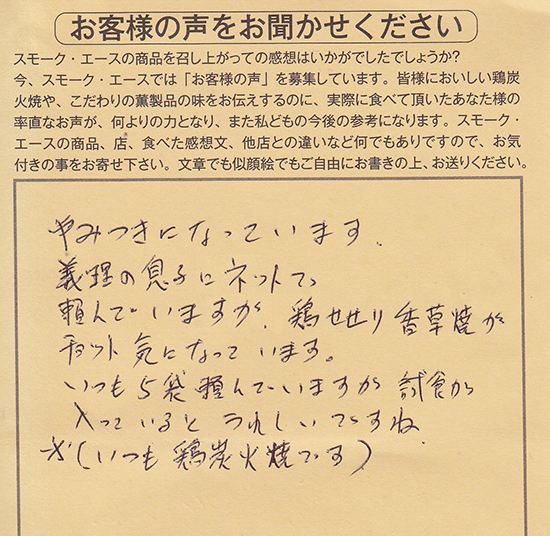 お客様の声をお聞かせください
スモーク・エースの商品を召し上がっての感想はいかがでしたでしょうか?
今、スモーク・エースでは「お客様の声」を募集しています。皆様においしい鶏炭
火焼や、こだわりの薫製品の味をお伝えするのに、実際に食べて頂いたあなた様の
率直なお声が、何よりの力となり、また私どもの今後の参考になります。スモーク・
エースの商品、店、食べた感想文、他店との違いなど何でもありですので、お気
付きの事をお寄せ下さい。文章でも似顔絵でもご自由にお書きの上、お送りください。
やみつきになっています。
義理の息子にネットで
頼んでいますが、鶏せせり香草焼が
チョット気になっています。
いつも5袋頼んでいますが試食が
入っているとうれしいですね
(いつも鶏炭火焼です)